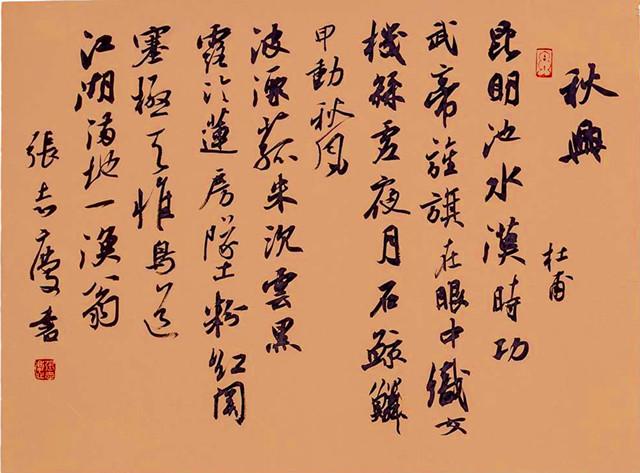 秋興
杜甫
昆明池水漢時功
武帝旌旗在眼中織女
機絲虛夜月石鯨鱗
甲動秋風
波漂菰米沈雲黑
露冷蓮房墜粉紅關
塞極天惟鳥道
江湖滿地一漁翁
張志慶書